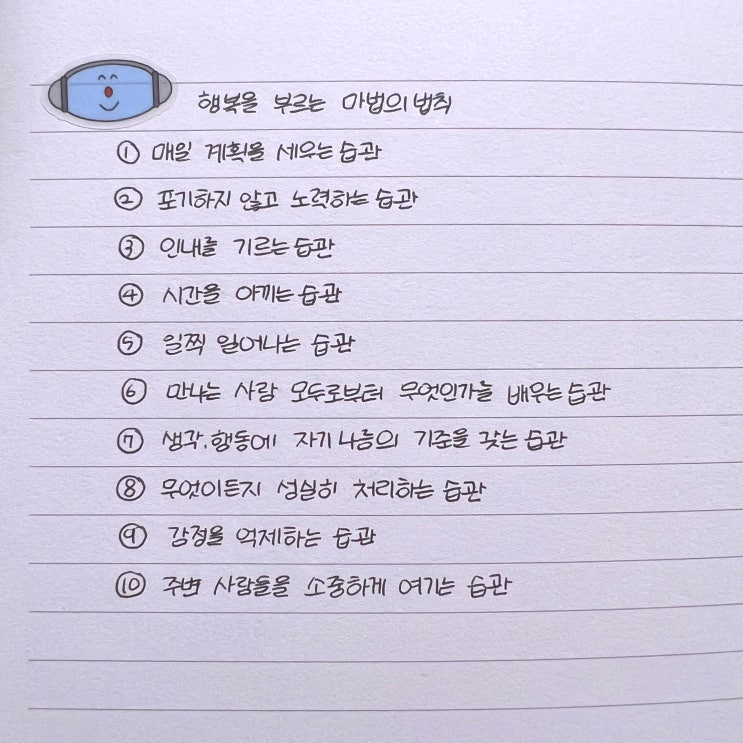 행복을 부르는 마법의 법칙
① 매일 계획을 세우는 습관
② 포기하지 않고 노력하는 습관
③ 인내를 기르는 습관
④ 시간을 아끼는 습관
⑤ 일찍 일어나는 습관
⑥ 만나는 사람 모두로부터 무엇인가를 배우는 습관
⑦ 생각.행동에 자기 나름의 기준을 갖는 습관
⑧ 무엇이든지 성실히 처리하는 습관
⑨ 감정을 억제하는 습관
⑩ 주변 사람들을 소중하게 여기는 습관